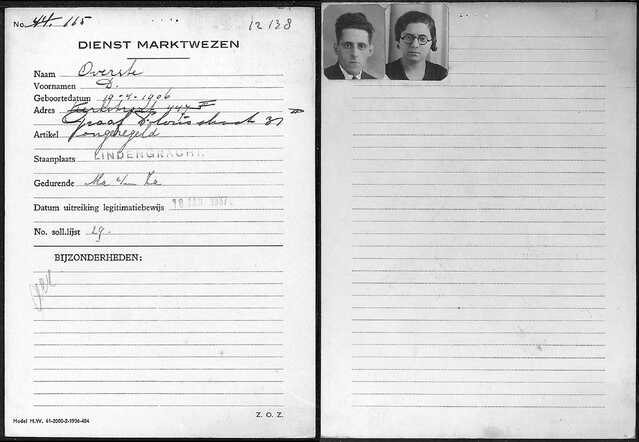 No. 44.165 12138
DIENST MARKTWEZEN
Naam Overste
Voornamen D.
Geboortedatum 19-4-1906
Adres 444 II
Graaf Florisstraat 31 II
Artikel ongeregeld
Staanplaats LINDENGRACHT.
Gedurende Ma t/m Za
Datum uitreiking legitimatiebewijs 1937.
No. soll.lijst 29.
BIJZONDERHEDEN:
Model M.W. 61-2000-2-1936-404
Z. O. Z.